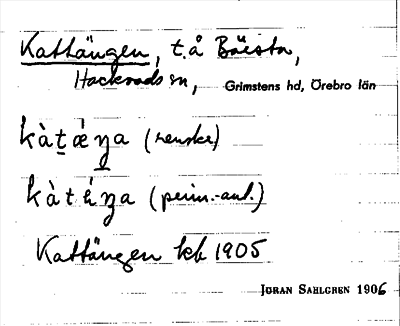 Kattängen, t.å Båsta,
Hackvads sn, Grimstens hd, Örebro län
kàt̠ǽŋa (svenska)
kàtéŋa
Kattängen kb 1905
JÖRAN SAHLGREN 1906